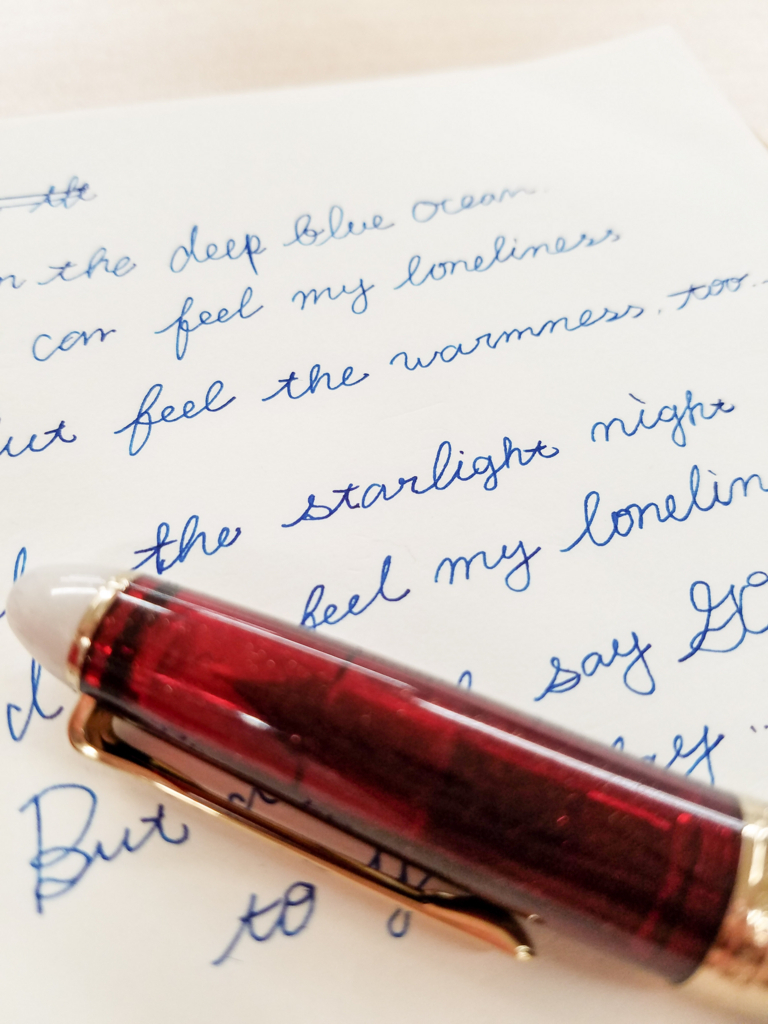 the
the deep blue ocean.
can feel my loneliness
but feel the warmness. too.
the starlight night
feel my lonelin
say
But
to